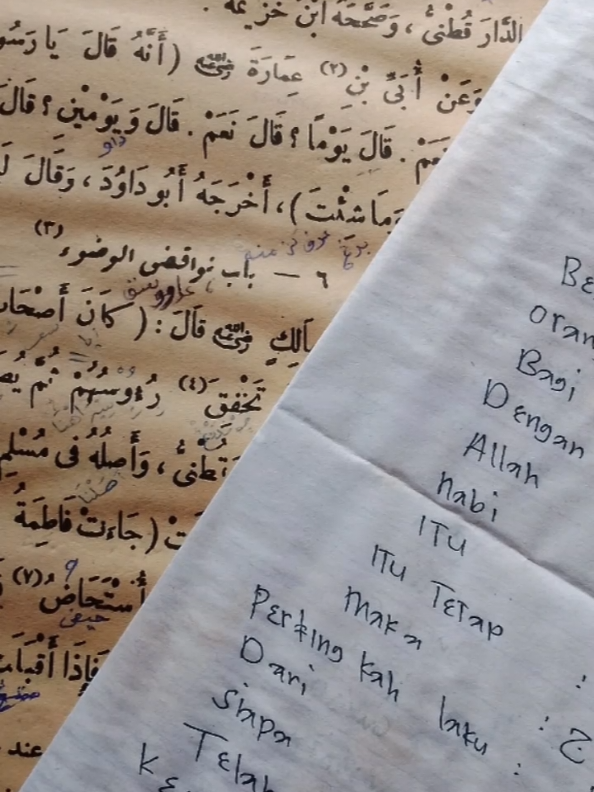 الدَّارَ قُطْنِىُّ ، وَصَحَّحَهُ ابْنُ خُزَيْمَةَ .
وَعَنْ أُبَىِّ بْنِ (٢) عِمَارَةَ رضي الله عنه (أَنَّهُ قَالَ يَا رَسُو
نَعَمْ . قَالَ يَوْمًا ؟ قَالَ نَعَمْ . قَالَ وَيَوْمَيْنِ ؟ قَالَ
داو
وَمَا شِئْتَ) ، أَخْرَجَهُ أَبُو دَاوُدَ ، وَقَالَ لَ
٦ — باب نواقض الوضوء (٣)
مَالِكٍ رضي الله عنه قَالَ : (كَانَ أَصْحَابُ
تَخْفِقَ (٤) رُءُوسُهُمْ ثُمَّ يُصَ
قُطْنِىُّ ، وَأَصْلُهُ فِى مُسْلِمٍ
تْ (جَاءَتْ فَاطِمَةُ
أُسْتَحَاضُ (٧)
حيض
فَإِذَا أَقْبَلَتْ
عند
BE
oran
Bagi
Dengan
Allah
nabi
ITU
ITU TETAP
maka :
Perting kah laku : ج
Dari :
siapa
Telah
KE